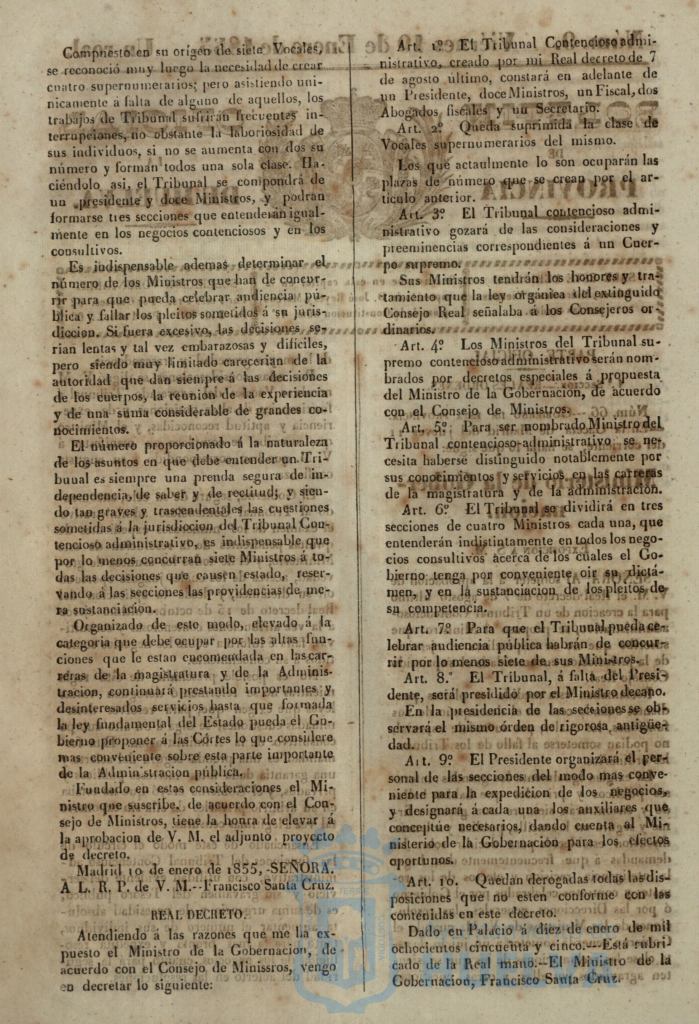 Compuesto en su orígen de siete Vocales,
se reconoció muy luego la necesidad de crear
cuatro supernumerarios; pero asistiendo uni-
nicamente á falta de alguno de aquellos, los
trabajos de Tribunal sufririan frecuentes in-
terrupciones, no obstante la laboriosidad de
sus individuos, si no se aumenta con dos su
número y forman todos una sola clase. Ha-
ciéndolo asi, el Tribunal se compondrá de
un presidente y doce Ministros, y podran
formarse tres secciones que entenderán igual-
mente en los negocios contenciosos y en los
consultivos.
Es indispensable ademas determinar el
número de los Ministros que han de concur-
rir para que pueda celebrar audiencia pú-
blica y fallar los pleitos sometidos á su juris-
diccion. Si fuera excesivo, las decisiones se-
rian lentas y tal vez embarazosas y difíciles,
pero siendo muy limitado carecerian de la
autoridad que dan siempre á las decisiones
de los cuerpos, la reunion de la experiencia
y de una suma considerable de grandes co-
nocimientos.
El número proporcionado á la naturaleza
de los asuntos en que debe entender un Tri-
bunal es siempre una prenda segura de in-
dependencia, de saber y de rectitud; y sien-
do tan graves y trascendentales las cuestiones
sometidas á la jurisdiccion del Tribunal Con-
tencioso administrativo, es indispensable que
por lo menos concurran siete Ministros á to-
das las decisiones que causen estado, reser-
vando á las secciones las providencias de me-
ra sustanciacion.
Organizado de este modo, elevado á la
categoria que debe ocupar por las altas fun-
ciones que le estan encomendada en las car-
reras de la magistratura y de la Adminis-
tracion, continuará prestando importantes y
desinteresados servicios hasta que formada
la ley fundamental del Estado pueda el Go-
bierno proponer á las Córtes lo que considere
mas conveniente sobre esta parte importante
de la Administracion pública.
Fundado en estas consideraciones el Mi-
nistro que suscribe, de acuerdo con el Con-
sejo de Ministros, tiene la honra de elevar á
la aprobacion de V. M. el adjunto proyecto
de decreto.
Madrid 10 de enero de 1855,-SEÑORA.
A L. R. P. de V. M.--Francisco Santa Cruz.
REAL DECRETO.
Atendiendo á las razones que me ha ex-
puesto el Ministro de la Gobernacion, de
acuerdo con el Consejo de Minissros, vengo
en decretar lo siguiente:
Art. 1º El Tribunal Contencioso admi-
nistrativo, creado por mi Real decreto de 7
de agosto último, constará en adelante de
un Presidente, doce Ministros, un Fiscal, dos
Abogados fiscales y un Secretario.
Art. 2º Queda suprimida la clase de
Vocales supernumerarios del mismo.
Los que actaulmente lo son ocuparán las
plazas de número que se crean por el ar-
tículo anterior.
Art. 3º El Tribunal contencioso admi-
nistrativo gozará de las consideraciones y
preeminencias correspondientes á un Cuer-
po supremo.
Sus Ministros tendrán los honores y tra-
tamiento que la ley orgánica del extinguido
Consejo Real señalaba á los Consejeros or-
dinarios.
Art. 4º Los Ministros del Tribunal su-
premo contencioso administrativo serán nom-
brados por decretos especiales á propuesta
del Ministro de la Gobernacion, de acuerdo
con el Consejo de Ministros.
Art. 5º Para ser nombrado Ministro del
Tribunal contencioso-administrativo se ne-
cesita haberse distinguido notablemente por
sus conocimientos y servicios en las carreras
de la magistratura y de la administracion.
Art. 6º El Tribunal se dividirá en tres
secciones de cuatro Ministros cada una, que
entenderán indistintamente en todos los nego-
cios consultivos acerca de los cuales el Go-
bierno tenga por conveniente oir su dictá-
men, y en la sustanciacion de los pleitos de
su competencia.
Art. 7º Para que el Tribunal pueda ce-
lebrar audiencia pública habrán de concur-
rir por lo menos siete de sus Ministros.
Art. 8.º El Tribunal, á falta del Presi-
dente, será presidido por el Ministro decano.
En la presidencia de las secciones se ob-
servará el mismo órden de rigorosa antigüe-
dad.
Art. 9º El Presidente organizará el per-
sonal de las secciones del modo mas conve-
niente para la expedicion de los negocios,
y designará á cada una los auxiliares que
conceptúe necesarios, dando cuenta al Mi-
nisterio de la Gobernacion para los efectos
oportunos.
Art. 10. Quedan derogadas todas las dis-
posiciones que no esten conforme con las
contenidas en este decreto.
Dado en Palacio á diez de enero de mil
ochocientos cincuenta y cinco.--Está rubri-
cado de la Real mano.--El Ministro de la
Gobernacion, Francisco Santa Cruz.